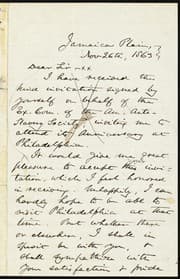 Jamaica Plain,
Nov. 26th, 1863.
Dear Sir
I have received the
kind invitation signed by
yourself on behalf of the
Ex. Com. of the Am. Anti-
Slavery Society inviting me to
attend its Anniversary at
Philadelphia.
It would give me great
pleasure to accept this invi-
tation, which I feel honored
in receiving. Unhappily, I can
hardly hope to be able to
visit Philadelphia at that
time. But whether there
or elsewhere, I shall in
spirit be with you,
shall sympathize with
your satisfaction & pride